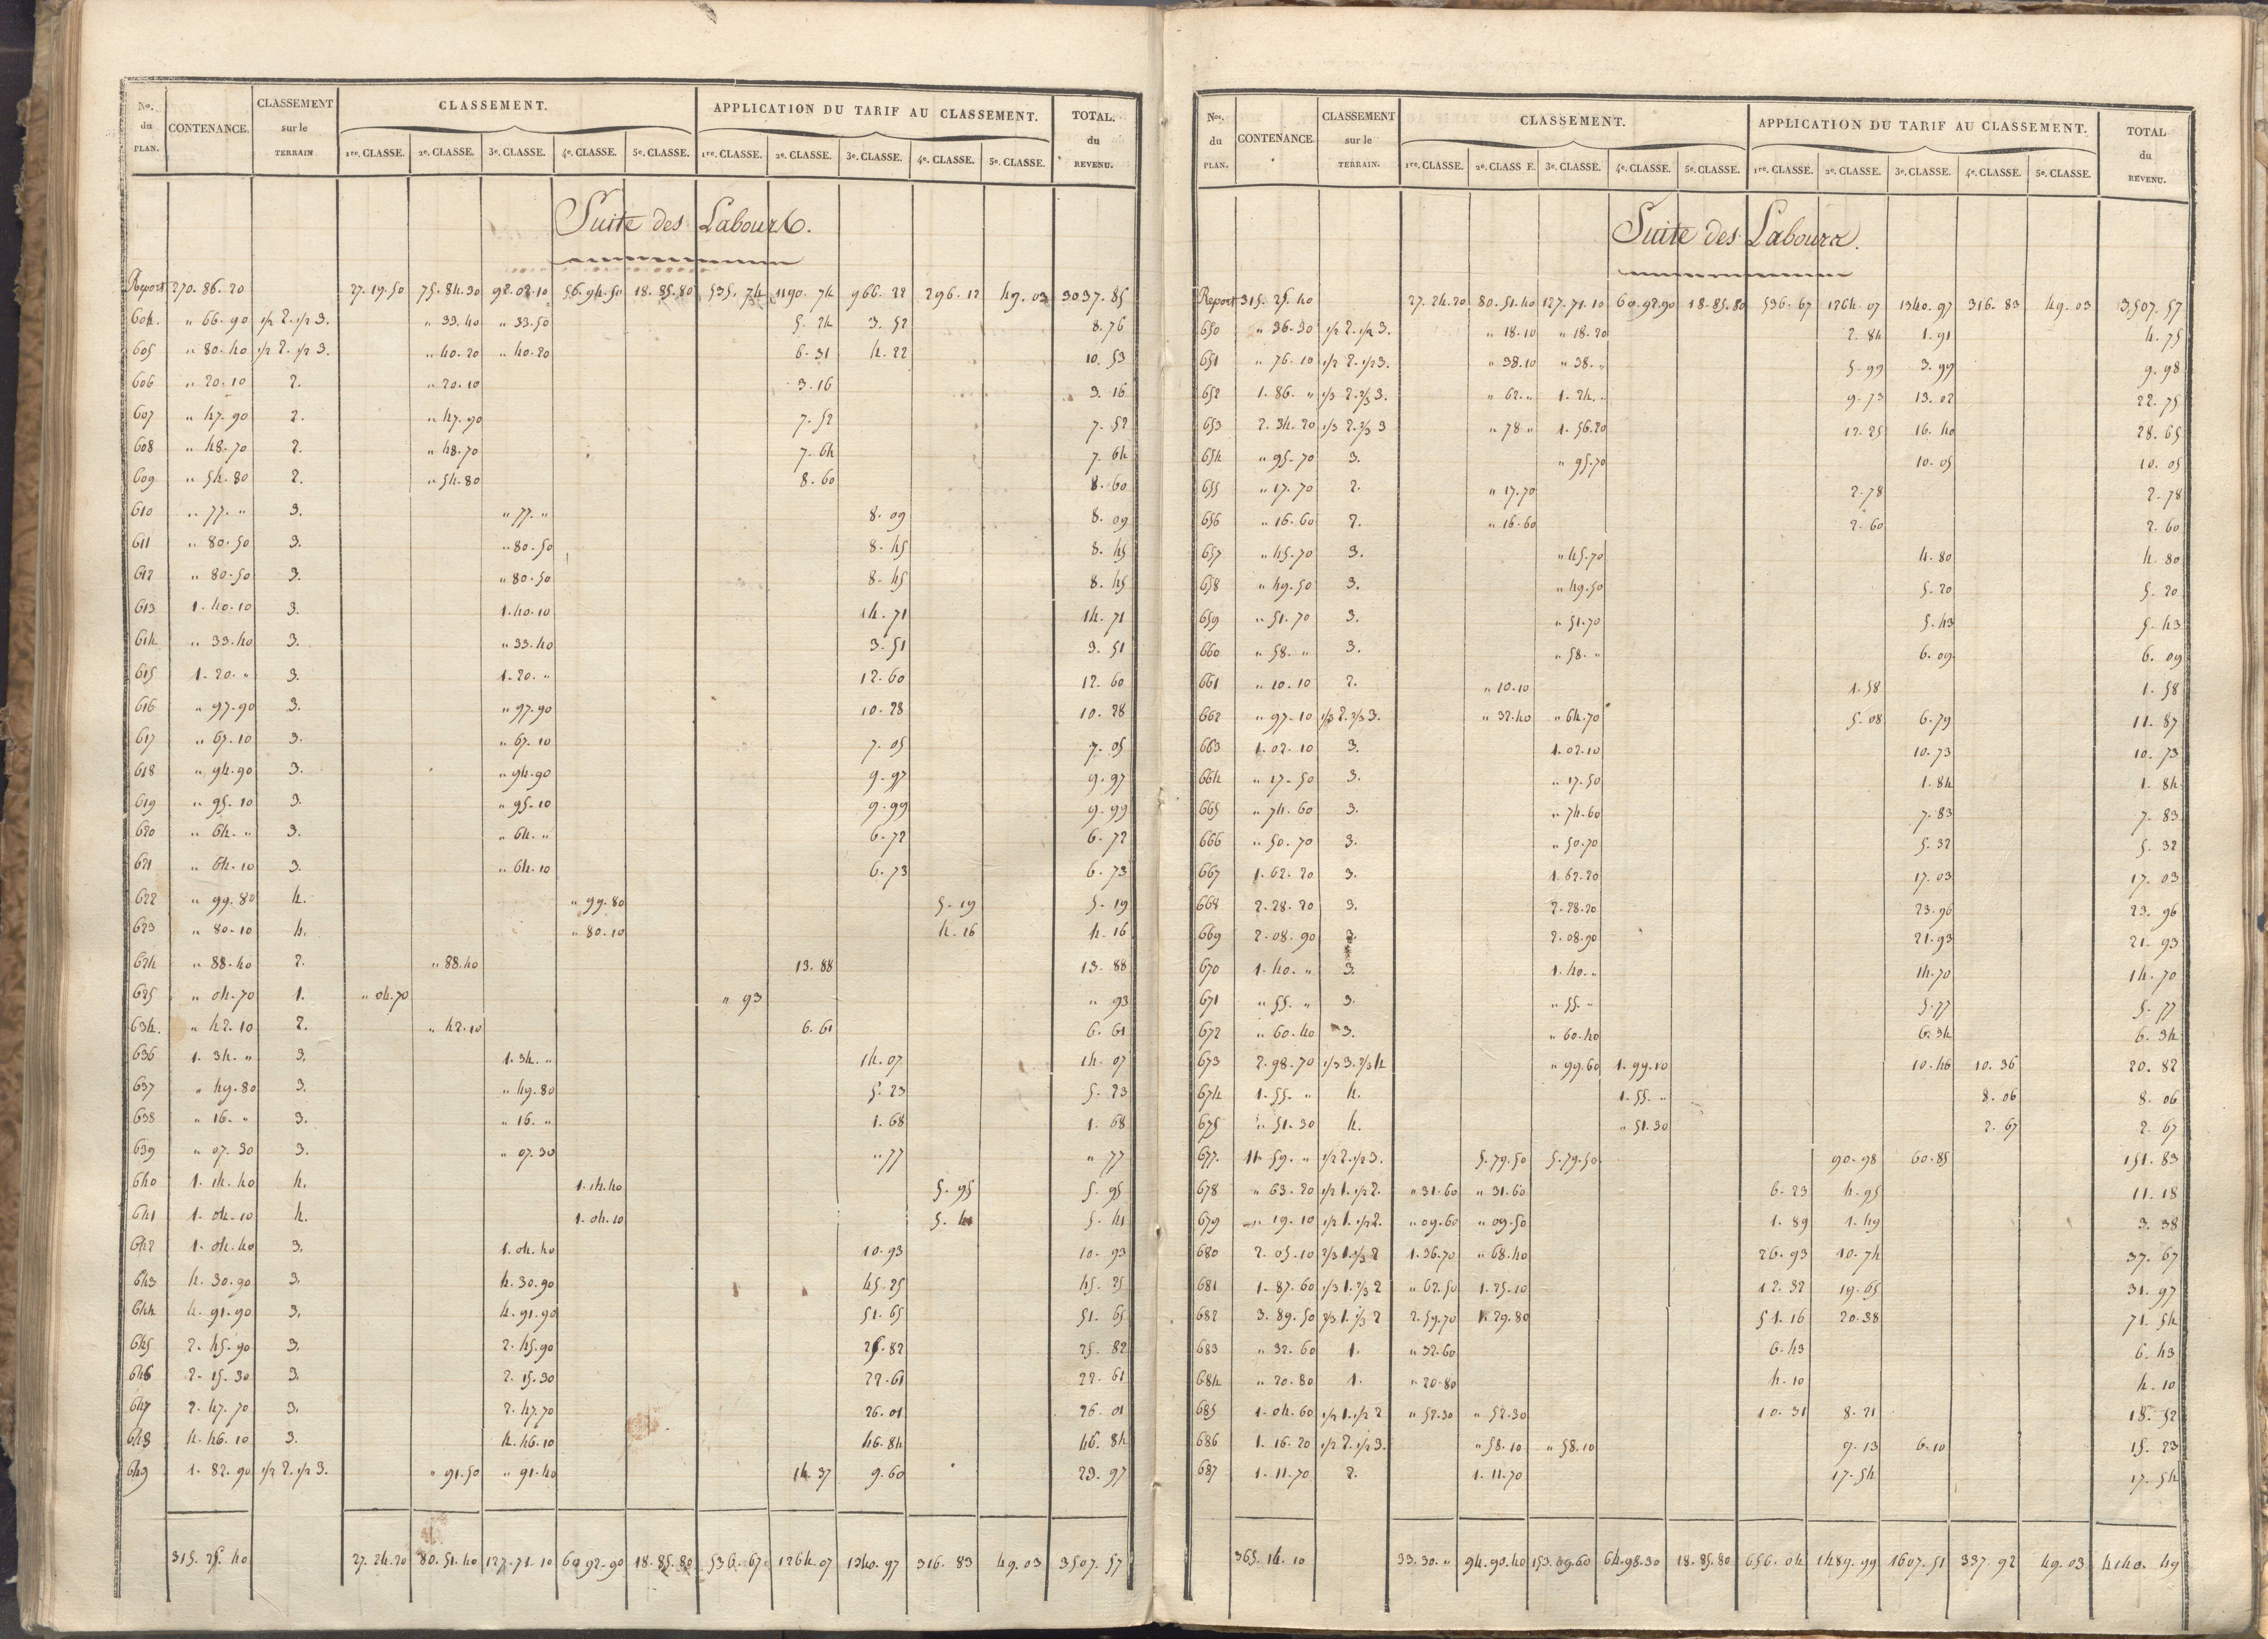 No. du PLAN. CONTENANCE. CLASSEMENT sur le TERRAIN CLASSEMENT. APPLICATION DU TARIF AU CLASSEMENT. TOTAL. du REVENU.
1re. CLASSE. 2e. CLASSE. 3e. CLASSE. 4e. CLASSE. 5e. CLASSE. 1re. CLASSE. 2e. CLASSE. 3e. CLASSE. 4e. CLASSE. 5e. CLASSE.
Suite des Labours.
Report 270. 86. 20 27. 19. 50 75. 84. 30 92. 02. 10 56. 94. 50 18. 85. 80 535. 74 1190. 74 966. 22 296. 12 49. 03 3037. 85
604. " 66. 90 1/2 2. 1/2 3. " 33. 40 " 33. 50 5. 24 3. 52 8. 76
605 " 80. 40 1/2 2. 1/2 3. " 40. 20 " 40. 20 6. 31 4. 22 10. 53
606 " 20. 10 2. " 20. 10 3. 16 3. 16
607 " 47. 90 2. " 47. 90 7. 52 7. 52
608 " 48. 70 2. " 48. 70 7. 64 7. 64
609 " 54. 80 2. " 54. 80 8. 60 8. 60
610 " 77. " 3. " 77. " 8. 09 8. 09
611 " 80. 50 3. " 80. 50 8. 45 8. 45
612 " 80. 50 3. " 80. 50 8. 45 8. 45
613 1. 40. 10 3. 1. 40. 10 14. 71 14. 71
614 " 33. 40 3. " 33. 40 3. 51 3. 51
615 1. 20. " 3. 1. 20. " 12. 60 12. 60
616 " 97. 90 3. " 97. 90 10. 28 10. 28
617 " 67. 10 3. " 67. 10 7. 05 7. 05
618 " 94. 90 3. " 94. 90 9. 97 9. 97
619 " 95. 10 3. " 95. 10 9. 99 9. 99
620 " 64. " 3. " 64. " 6. 72 6. 72
621 " 64. 10 3. " 64. 10 6. 73 6. 73
622 " 99. 80 4. " 99. 80 5. 19 5. 19
623 " 80. 10 4. " 80. 10 4. 16 4. 16
624 " 88. 40 2. " 88. 40 13. 88 13. 88
625 " 04. 70 1. " 04. 70 " 93 " 93
634. " 42. 10 2. " 42. 10 6. 61 6. 61
636 1. 34. " 3. 1. 34. " 14. 07 14. 07
637 " 49. 80 3. " 49. 80 5. 23 5. 23
638 " 16. " 3. " 16. " 1. 68 1. 68
639 " 07. 30 3. " 07. 30 " 77 " 77
640 1. 14. 40 4. 1. 14. 40 5. 95 5. 95
641 1. 04. 10 4. 1. 04. 10 5. 41 5. 41
642 1. 04. 40 3. 1. 04. 40 10. 93 10. 93
643 4. 30. 90 3. 4. 30. 90 45. 25 45. 25
644 4. 91. 90 3. 4. 91. 90 51. 65 51. 65
645 2. 45. 90 3. 2. 45. 90 25. 82 25. 82
646 2. 15. 30 3. 2. 15. 30 22. 61 22. 61
647 2. 47. 70 3. 2. 47. 70 26. 01 26. 01
648 4. 46. 10 3. 4. 46. 10 46. 84 46. 84
649 1. 82. 90 1/2 2. 1/2 3. " 91. 50 " 91. 40 14. 37 9. 60 23. 97
315. 25. 40 27. 24. 20 80. 51. 40 127. 71. 10 60. 92. 90 18. 85. 80 536. 67 1264. 07 1340. 97 316. 83 49. 03 3507. 57
Nos. du PLAN. CONTENANCE. CLASSEMENT sur le TERRAIN. CLASSEMENT. APPLICATION DU TARIF AU CLASSEMENT. TOTAL du REVENU.
1re. CLASSE. 2e. CLASS E. 3e. CLASSE. 4e. CLASSE. 5e. CLASSE. 1re. CLASSE. 2e. CLASSE. 3e. CLASSE. 4e. CLASSE. 5e. CLASSE.
Suite des Labours.
Report 315. 25. 40 27. 24. 20 80. 51. 40 127. 71. 10 60. 92. 90 18. 85. 80 536. 67 1264. 07 1340. 97 316. 83 49. 03 3,507. 57
650 " 36. 30 1/2 2. 1/2 3. " 18. 10 " 18. 20 2. 84 1. 91 4. 75
651 " 76. 10 1/2 2. 1/2 3. " 38. 10 " 38. " 5. 99 3. 99 9. 98
652 1. 86. " 1/3 2. 2/3 3. " 62. " 1. 24. " 9. 73 13. 02 22. 75
653 2. 34. 20 1/3 2. 2/3 3 " 78. " 1. 56. 20 12. 25 16. 40 28. 65
654 " 95. 70 3. " 95. 70 10. 05 10. 05
655 " 17. 70 2. " 17. 70 2. 78 2. 78
656 " 16. 60 2. " 16. 60 2. 60 2. 60
657 " 45. 70 3. " 45. 70 4. 80 4. 80
658 " 49. 50 3. " 49. 50 5. 20 5. 20
659 " 51. 70 3. " 51. 70 5. 43 5. 43
660 " 58. " 3. " 58. " 6. 09 6. 09
661 " 10. 10 2. " 10. 10 1. 58 1. 58
662 " 97. 10 1/3 2. 2/3 3. " 32. 40 " 64. 70 5. 08 6. 79 11. 87
663 1. 02. 10 3. 1. 02. 10 10. 73 10. 73
664 " 17. 50 3. " 17. 50 1. 84 1. 84
665 " 74. 60 3. " 74. 60 7. 83 7. 83
666 " 50. 70 3. " 50. 70 5. 32 5. 32
667 1. 62. 20 3. 1. 62. 20 17. 03 17. 03
668 2. 28. 20 3. 2. 28. 20 23. 96 23. 96
669 2. 08. 90 3. 2. 08. 90 21. 93 21. 93
670 1. 40. " 3. 1. 40. " 14. 70 14. 70
671 " 55. " 3. " 55. " 5. 77 5. 77
672 " 60. 40 3. " 60. 40 6. 34 6. 34
673 2. 98. 70 1/3 3. 2/3 4 " 99. 60 1. 99. 10 10. 46 10. 36 20. 82
674 1. 55. " 4. 1. 55. " 8. 06 8. 06
675 " 51. 30 4. " 51. 30 2. 67 2. 67
677. 11. 59. " 1/2 2. 1/2 3. 5. 79. 50 5. 79. 50 90. 98 60. 85 151. 83
678 " 63. 20 1/2 1. 1/2 2. " 31. 60 " 31. 60 6. 23 4. 95 11. 18
679 " 19. 10 1/2 1. 1/2 2. " 09. 60 " 09. 50 1. 89 1. 49 3. 38
680 2. 05. 10 2/3 1. 1/3 2 1. 36. 70 " 68. 40 26. 93 10. 74 37. 67
681 1. 87. 60 1/3 1. 2/3 2 " 62. 50 1. 25. 10 12. 32 19. 65 31. 97
682 3. 89. 50 2/3 1. 1/3 2 2. 59. 70 1. 29. 80 51. 16 20. 38 71. 54
683 " 32. 60 1. " 32. 60 6. 43 6. 43
684 " 20. 80 1. " 20. 80 4. 10 4. 10
685 1. 04. 60 1/2 1. 1/2 2 " 52. 30 " 52. 30 10. 31 8. 21 18. 52
686 1. 16. 20 1/2 2. 1/2 3. " 58. 10 " 58. 10 9. 13 6. 10 15. 23
687 1. 11. 70 2. 1. 11. 70 17. 54 17. 54
365. 14. 10 33. 30. " 94. 90. 40 153. 09. 60 64. 98. 30 18. 85. 80 656. 04 1489. 99 1607. 51 337. 92 49. 03 4140. 49